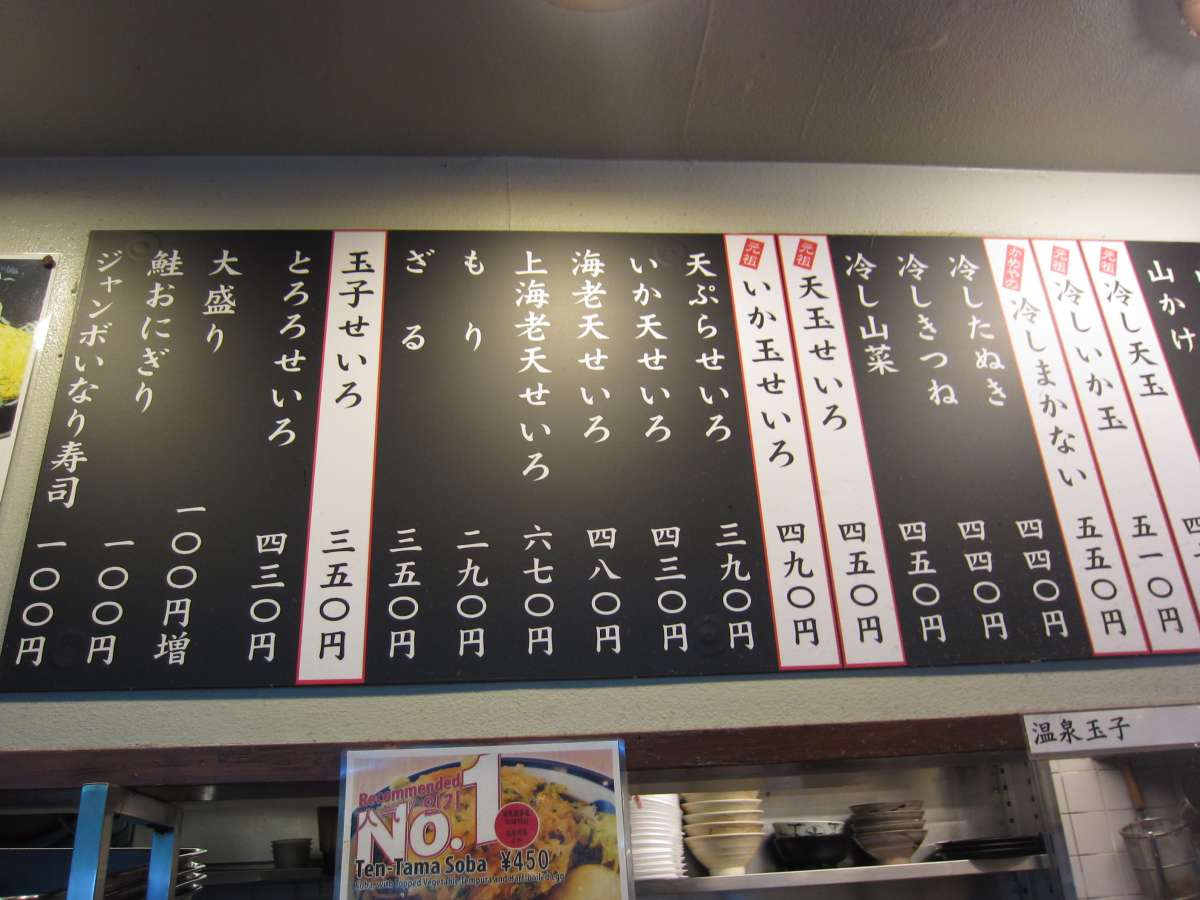 山かけ
元祖 冷し天玉
元祖 冷しいか玉 五一〇円
かめやの 冷しまかない 五五〇円
冷したぬき 四四〇円
冷しきつね 四四〇円
冷し山菜 四五〇円
元祖 天玉せいろ 四五〇円
元祖 いか玉せいろ 四九〇円
天ぷらせいろ 三九〇円
いか天せいろ 四三〇円
海老天せいろ 四八〇円
上海老天せいろ 六七〇円
もり 二九〇円
ざる 三五〇円
玉子せいろ 三五〇円
とろろせいろ 四三〇円
大盛り 一〇〇円増
鮭おにぎり 一〇〇円
ジャンボいなり寿司 一〇〇円
温泉玉子
Recommended
人气 인기
No.1
Ten-Tama Soba ¥450
Soba with Topped Vegetable Tempura and Half-boiled egg